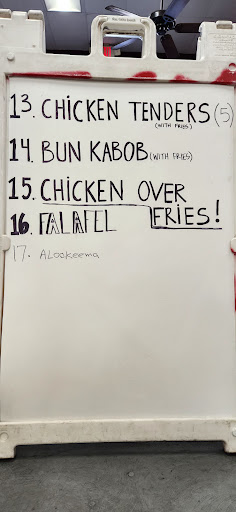 13. CHICKEN TENDERS (5)
(WITH FRIES)
14. BUN KABOB (WITH FRIES)
15. CHICKEN OVER
FRIES!
16. FALAFEL
17. Alookeema